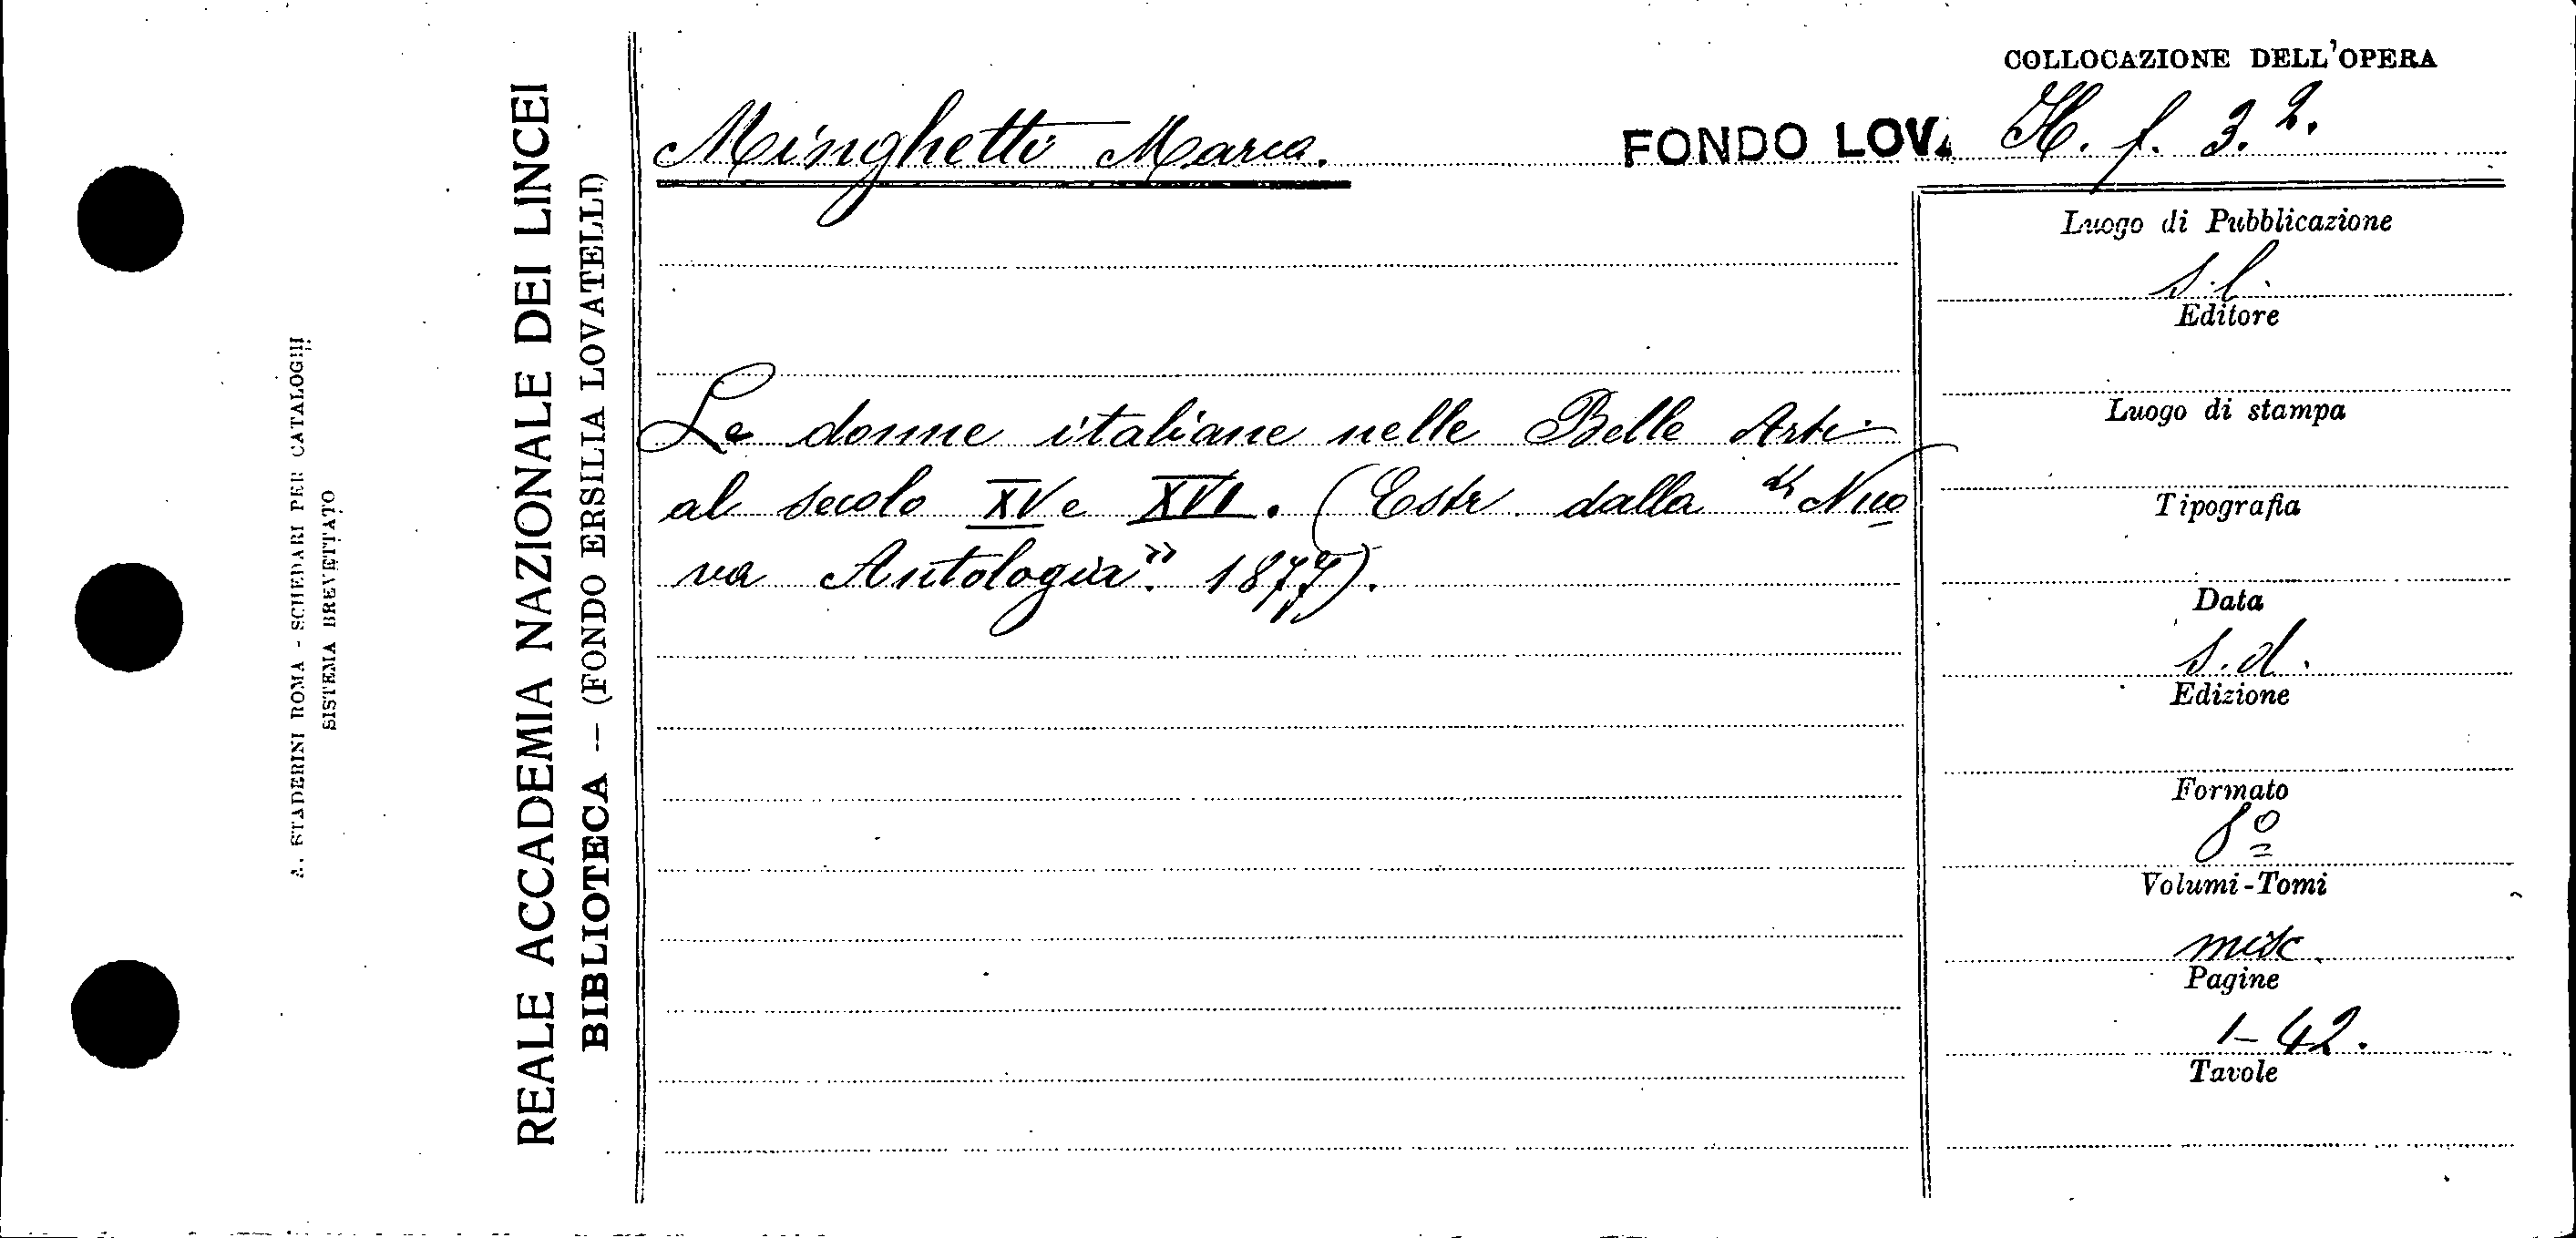 A. STADERINI ROMA - SCHEDARI PER CATALOGHI
SISTEMA BREVETTATO
REALE ACCADEMIA NAZIONALE DEI LINCEI
BIBLIOTECA — (FONDO ERSILIA LOVATELLI)
COLLOCAZIONE DELL'OPERA
Minghetti Marco.
FONDO LOV. H. f. 3. 2.
Le donne italiane nelle Belle Arti
al secolo XV e XVI. (Estr. dalla "Nuo
va Antologia". 1877).
Luogo di Pubblicazione
s.l.
Editore
Luogo di stampa
Tipografia
Data
s.d.
Edizione
Formato
8º
Volumi-Tomi
misc.
Pagine
1-42.
Tavole